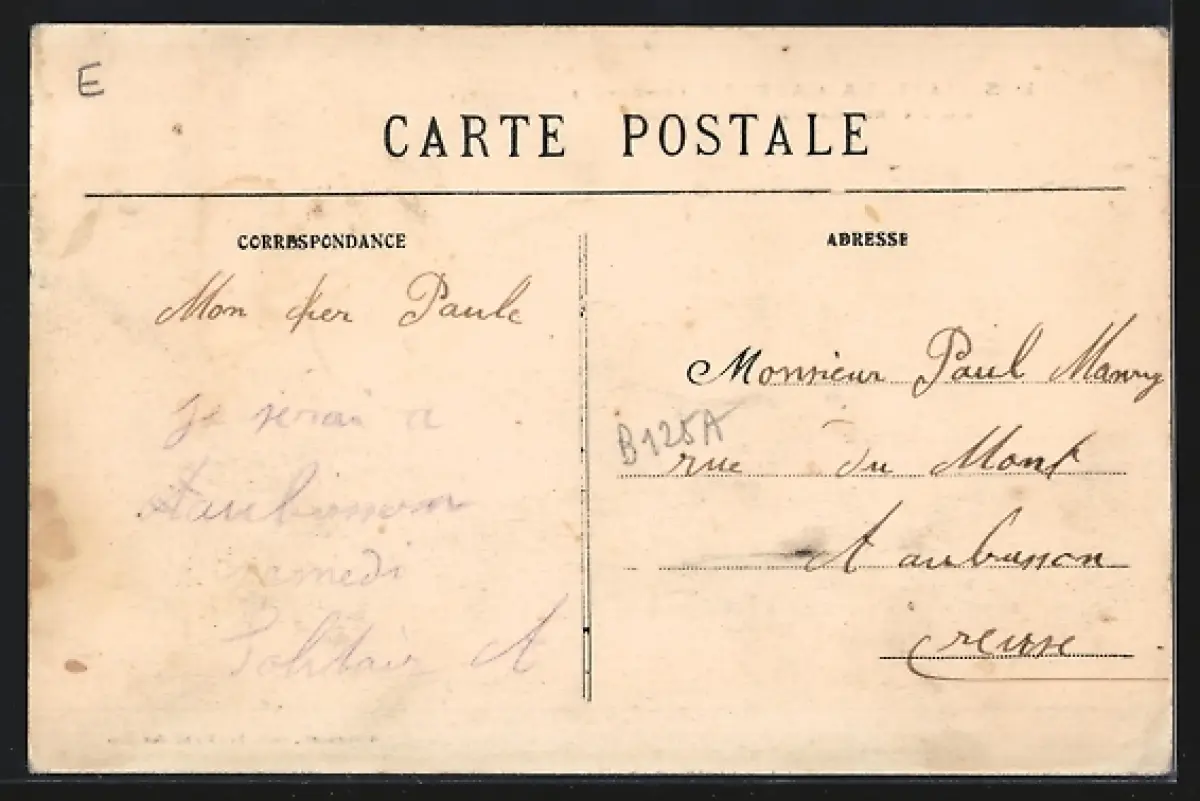 E
CARTE POSTALE
CORRESPONDANCE
Mon cher Paule
je serai a
Aaubusson
samedi
A
ADRESSE
Monsieur Paul Maury
B125A
rue du Mont
A aubusson
Creuse